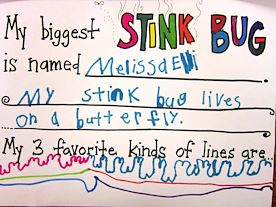 My biggest STINK BUG
is named Melissa Elli
My stink bug lives
on a butterfly.
My 3 favorite kinds of lines are